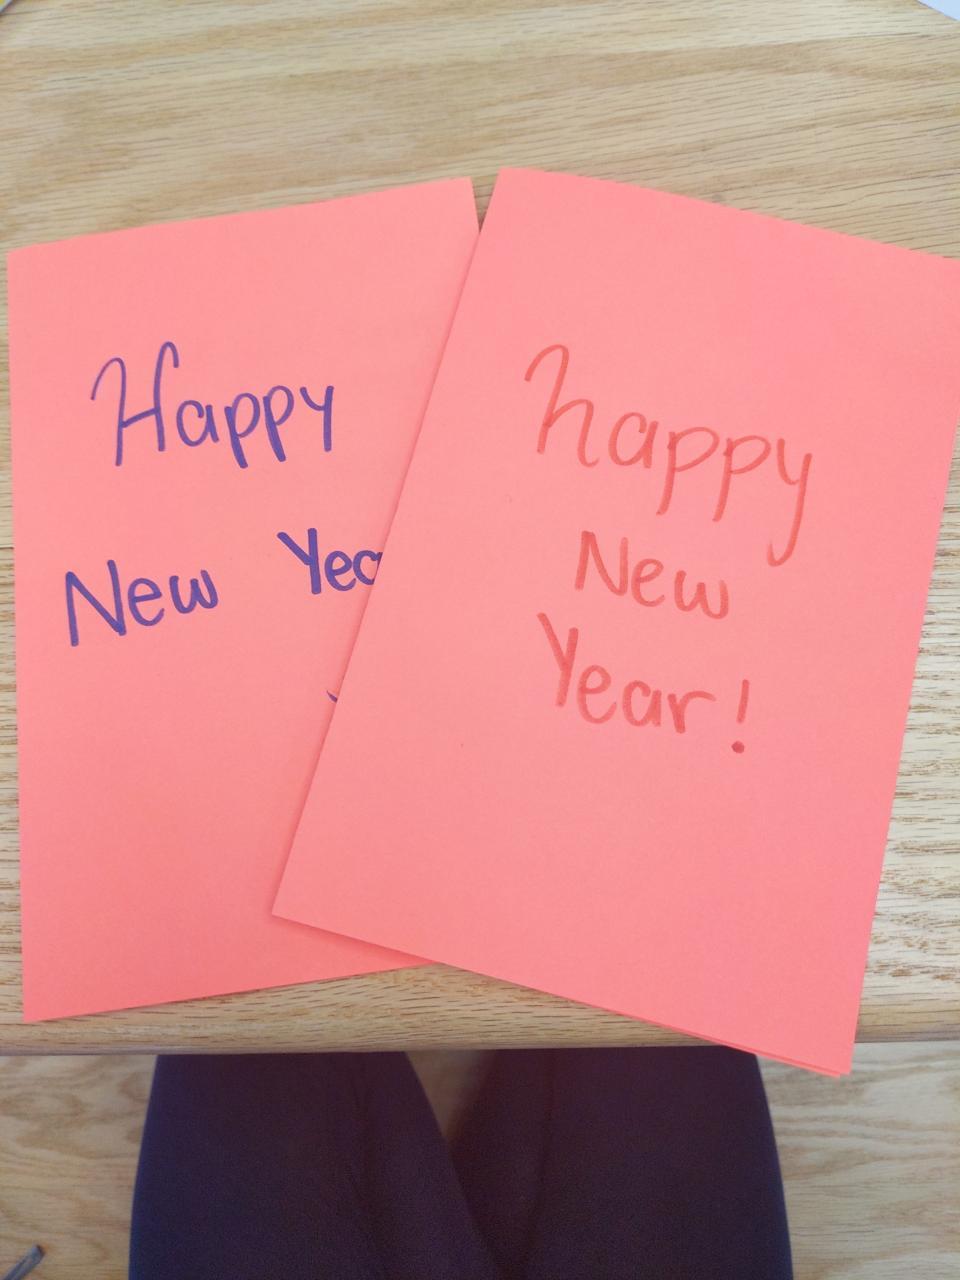 Happy
New Yea
happy
New
Year!